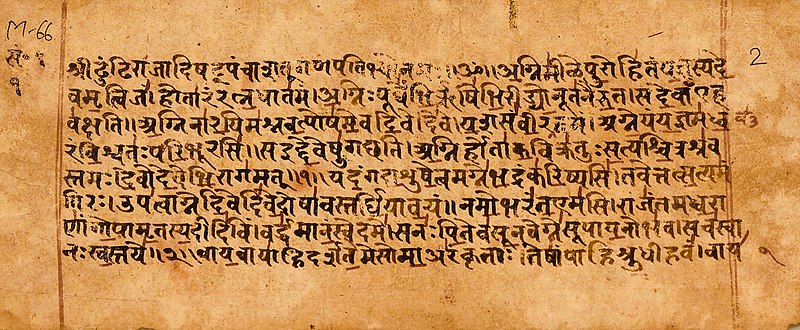 M-66
2
१
श्रीढुंढिराजादिषट्पंचाशत्गणपति ॥ॐ॥अग्निमीळेपुरोहितंयज्ञस्यदे
वमृत्विजं॥होतारंरत्नधातमं॥अग्निःपूर्वेभिर्ऋषिभिरीड्योनूतनैरुत॥सदेवाँएह
वक्षति॥अग्निनारयिमश्नवत्पोषमेवदिवेदिवे॥यशसंवीरवत्तमं॥अग्नेयंयज्ञमध्व
रंविश्वतःपरिभूरसि॥सइद्देवेषुगच्छति॥अग्निर्होताकविक्रतुःसत्यश्चित्रश्रव
स्तमः॥देवोदेवेभिरागमत्॥१॥यदंगदाशुषेत्वमग्नेभद्रंकरिष्यसि॥तवेत्तत्सत्यमं
गिरः॥उपत्वाग्नेदिवेदिवेदोषावस्तर्धियावयं॥नमोभरंतएमसि॥राजंतमध्वरा
णांगोपामृतस्यदीदिविं॥वर्द्धमानंस्वेदमे॥सनःपितेवसूनवेग्नेसूपायनोभव॥सचस्वा
नःस्वस्तये॥२॥वायवायाहिदर्शतेमेसोमाअरंकृताः॥तेषांपाहिश्रुधीहवं॥वाय